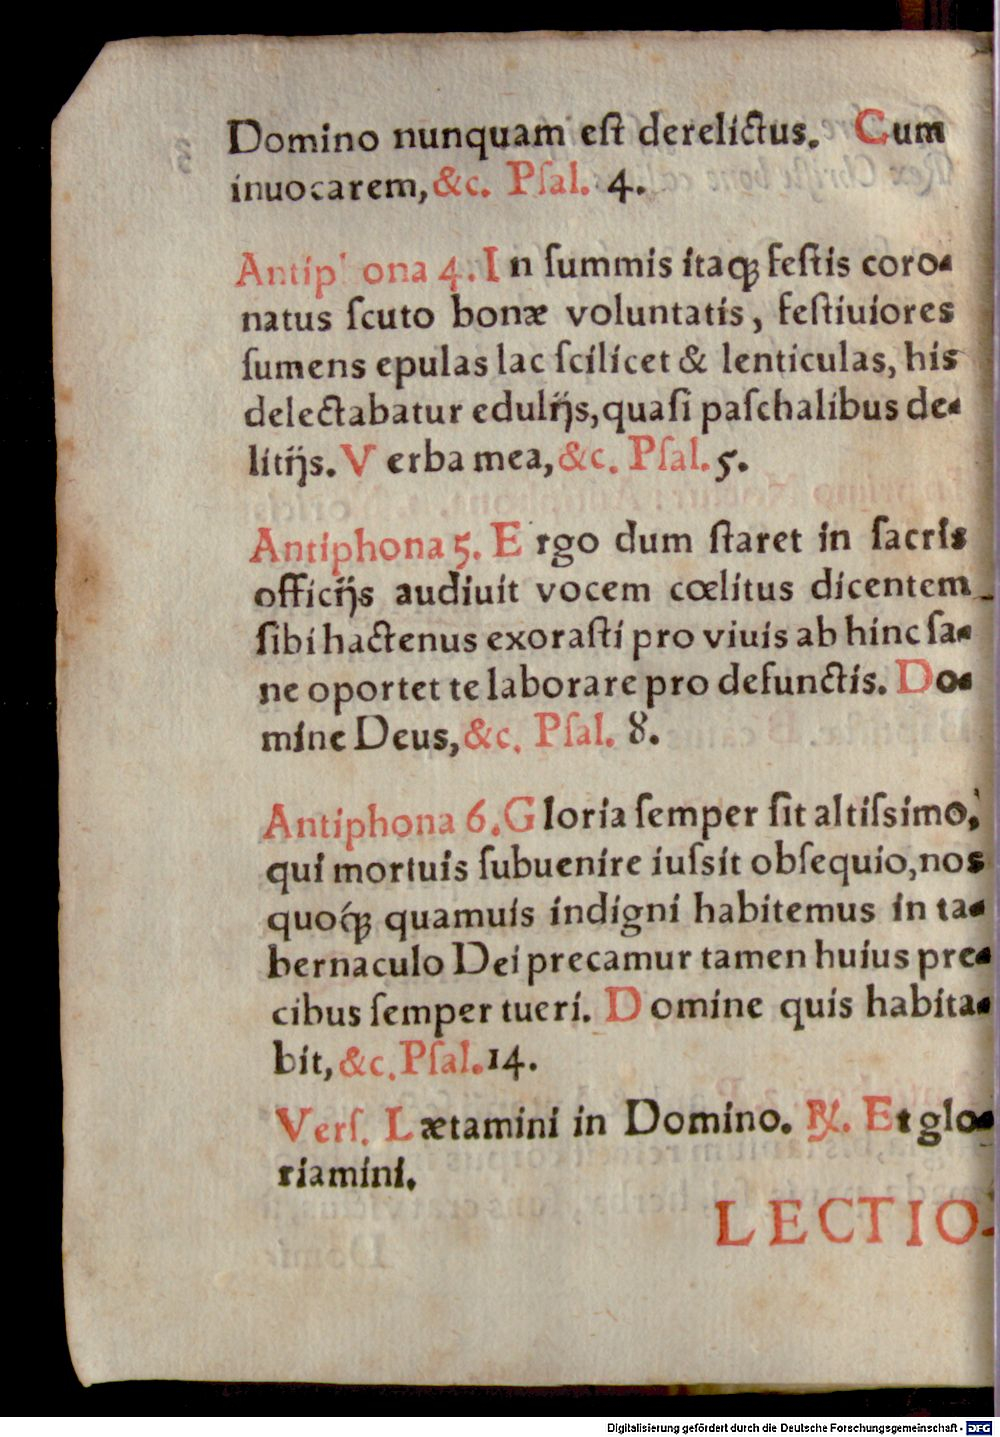 Domino nunquam eſt derelictus. Cum
inuocarem, &c. Pſal. 4.
Antiphona 4. In ſummis itaq́ꝫ feſtis coro-
natus ſcuto bonæ voluntatis, feſtiuiores
ſumens epulas lac ſcilicet & lenticulas, his
delectabatur edulijs, quaſi paſchalibus de-
litijs. Verba mea, &c. Pſal. 5.
Antiphona 5. Ergo dum ſtaret in ſacris
officijs audiuit vocem cœlitus dicentem
ſibi hactenus exoraſti pro viuis ab hinc ſa-
ne oportet te laborare pro defunctis. Do-
mine Deus, &c. Pſal. 8.
Antiphona 6. Gloria ſemper ſit altiſsimo,
qui mortuis ſubuenire iuſsit obſequio, nos
quoq́ꝫ quamuis indigni habitemus in ta-
bernaculo Dei precamur tamen huius pre-
cibus ſemper tueri. Domine quis habita-
bit, &c. Pſal. 14.
Verſ. Lætamini in Domino. ℟. Et glo-
riamini.
LECTIO
Digitalisierung gefördert durch die Deutsche Forschungsgemeinschaft - DFG